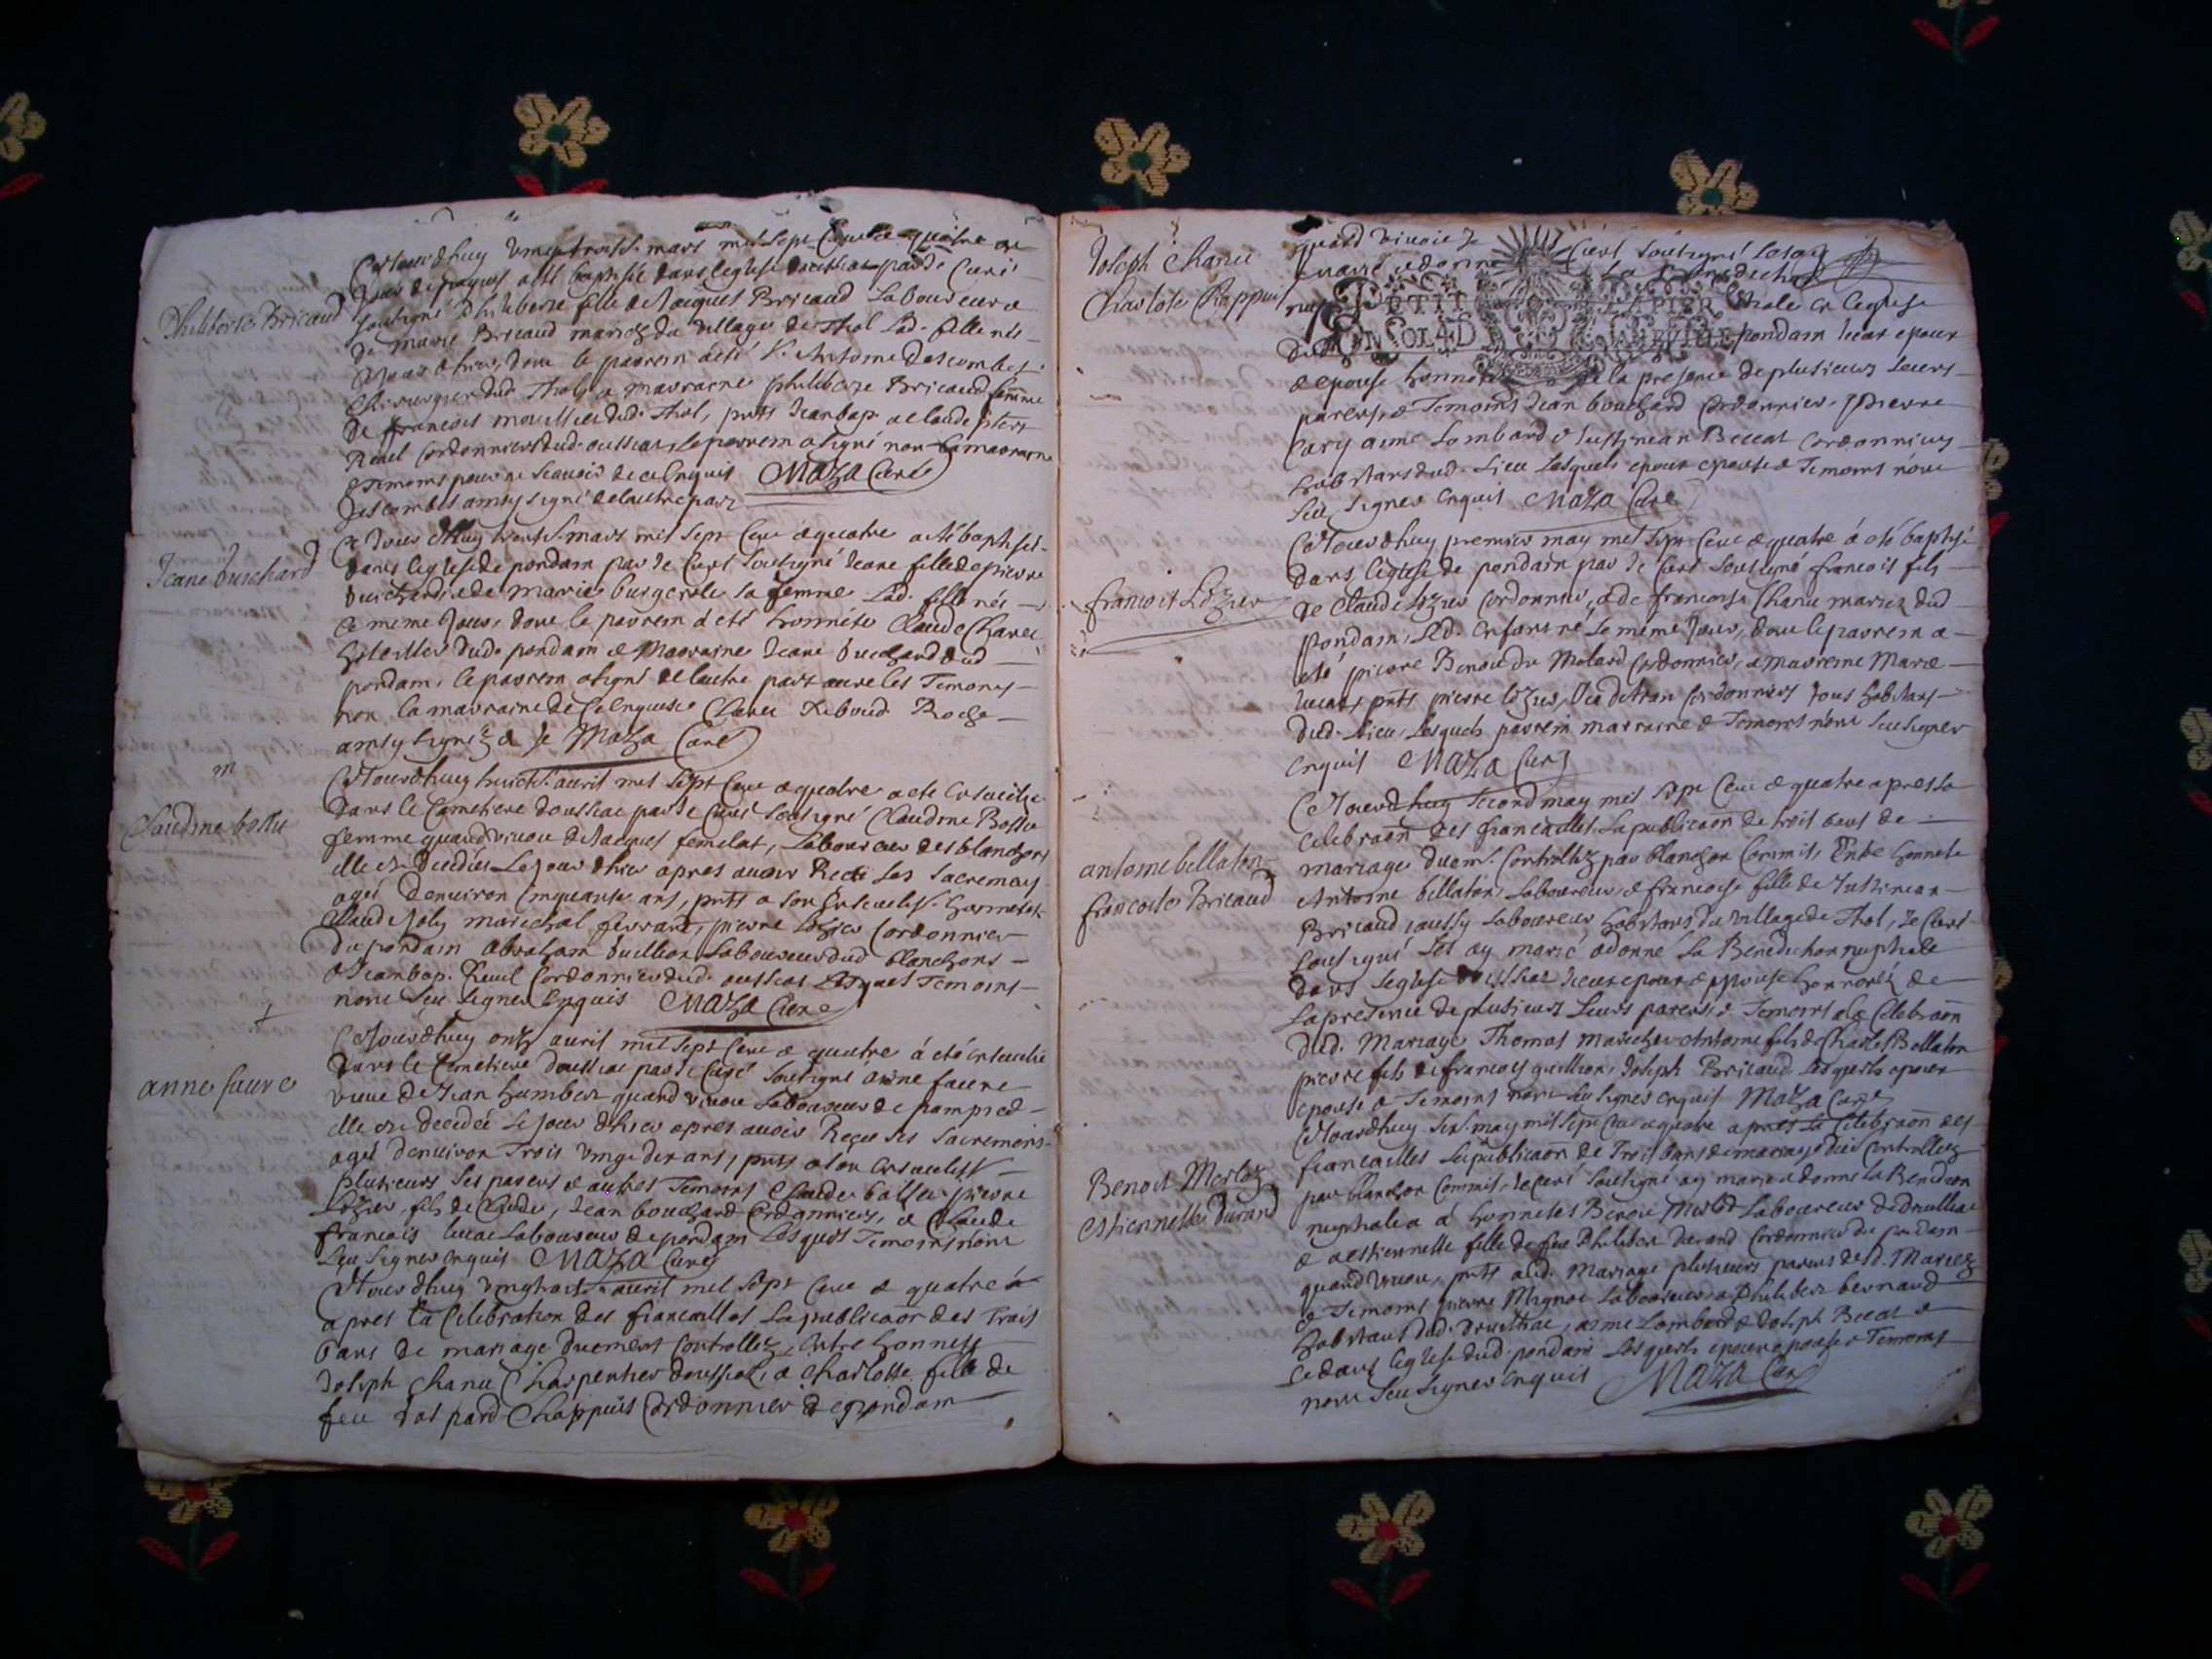 Philiberte Bricaud
Cejourdhuy vingttrois.e mars mil sept Cent et quatre
jour de paques a esté baptisée dans leglise doussiat par Je Curé
soutigné Philiberte fille de Jacques Bricaud Laboureur et
de marie Bricaud mariez du village de Thol Lad. fille née
dont le parrein a eté Antoine Descombes
Chirurgien dud Thol, et marraine philiberte Bricaud femme
de francois dud. Thol, pntts Jean bap. et claude
Reuel Cordonniers dud. oussiat, le parrein a signé non la marraine
et temoins pour ne scauoir de ce enquis Maza Curé
Descombes ainsy signé de lautre part
Jeane buichard
Ce jour dhuy mars mil sept Cent et quatre a eté baptisée
dans leglise de pondain par Je Curé soutigné Jeane fille de pierre
buichard et de marie sa femme Lad. fille née
ce meme Jour, dont le parrein a eté honnéte Claude Chanel
dud. pondain et Marraine Jeane buichard dud
pondain, le parrein a signé de lautre part auec les Temoins
non la marraine de ce enquise Chanel Reboud Roche
ainsy signez et Je Maza Curé
m
Claudine bossu
Cejourdhuy huict.e auril mil sept Cent et quatre a eté enseuelie
dans le Cemetiere doussiat par Je Curé soutigné Claudine Bossu
femme quand viuoit de Jacques femelat, Laboureur des blanchons
elle est decedée Le jour dhier apres auoir Receu les sacremens
agée denuiron cinquante ans, pntts a son enseueliss. honnetes
Claude Joly marechal ferrant, pierre Lozier Cordonnier
du pondain abraham buillion Laboureur dud blanchons
et Jean bap. Reuel Cordonnier dud. oussiat Lesquels Temoins
nont sceu signer enquis Maza Curé
anne faure
Cejourdhuy onz.e auril mil sept Cent et quatre á eté enseuelie
dans le Cemetiere doussiat par Je Curé soutigné anne faure
veuue de Jean humbert quand viuoit Laboureur de
elle est decedée le jour dhier apres auoir Receu les sacremens
agée denuiron Trois vingt dix ans, pntts a son enseueliss.
plusieurs ses parens et autres Temoins Claude pierre
Lozier, fils de Claude, Jean bouchard Cordonniers, et Claude
francois lucat Laboureur de pondain Lesquels Temoins nont
sceu signer enquis Maza Curé
Cejourdhuy vingthuict.e auril mil sept Cent et quatre á
apres la Celebration des fiancailles La publicaon des Trois
bans de mariage duement Controllez, entre honneste
Joseph Chanel Charpentier doussiat, et Charlotte fille de
feu Gaspard Chappuis Cordonnier de pondain
Joseph Chanel
Charlote Chappuis
quand viuoit Je Curé soutigné les ay
marié et donné La Benediction
PETIT PAPIER
UN SOL 4 D
dud pondain lieux epoux
et epouse honnorez de la presence de plusieurs leurs
parens, et Temoins Jean bouchard Cordonnier, pierre
Cary aimé Lombard et Justinean Beccat Cordonniers
habitans dud. Lieu Lesquels epoux epouse et Temoins nont
sceu signer enquis Maza Curé
francois Lozier
Cejourdhuy premier may mil sept Cent et quatre á eté baptisé
dans leglise de pondain par Je Curé soutigné francois fils
de Claude Lozier Cordonnier, et de francoise Chanel mariez dud
pondain, Led. enfant né le méme Jour, dont le parrein a
eté pierre Benoit du Molard Cordonnier, et marreine Marie
lucat, pntts pierre Lozier, Cordonniers tous habitans
dud. Lieu, Lesquels parrein marraine et Temoins nont sceu signer
enquis Maza Curé
antoine bellaton
francoise Bricaud
Cejourdhuy second may mil sept Cent et quatre apres la
Celebraon des fiancailles La publicaon de trois bans de
mariage duem.t Controllez par blanchon Commis, Entre honnete
Antoine bellaton, Laboureur, et francoise fille de Justinean
Bricaud, aussy Laboureur, habitans du village de Thol, Je Curé
soutigné les ay marié et donné La Benediction nuptiale
dans Leglise doussiat lieux epoux et epouse honnorez de
La presence de plusieurs Leurs parens, et Temoins de la Celebraon
dud. Mariage Thomas Antoine fils de Charles Bellaton
pierre fils de francois Joseph Bricaud Lesquels epoux
epouse et Temoins nont sceu signer enquis Maza Curé
Benoit Merloz
Estiennette durand
Cejourdhuy six.e may mil sept Cent et quatre apres la Celebraon des
fiancailles La publicaon de Trois bans de mariage duem.t Controllez
par blanchon Commis, Je Curé soutigné ay marié et donné La Benediction
nuptiale a á honnetes Benoit Merloz Laboureur de Druillat
et a estiennette fille de feu Philibert durand Cordonnier du pondain
quand viuoit, pntts aud. Mariage plusieurs parens desd. Mariez
et Temoins pierre Mignot Laboureur et Philibert bernard
habitans dud. druilliat, aimé Lombard et Joseph Beccat et
ce dans leglise dud. pondain Lesquels epoux epouse et Temoins
nont sceu signer enquis Maza Curé